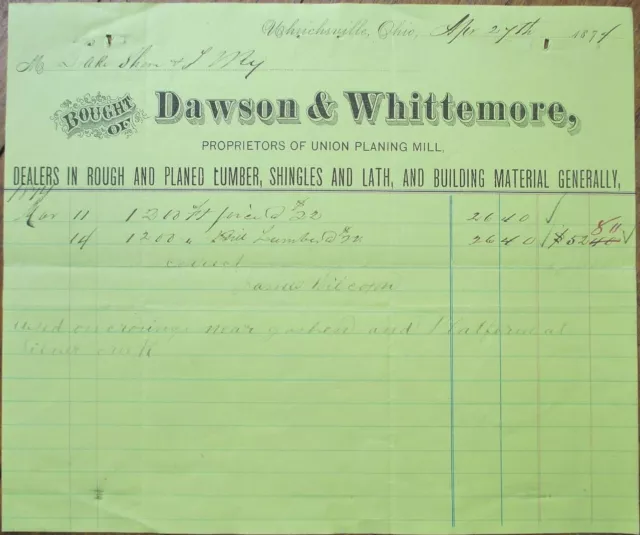 Uhrichsville, Ohio, Apr 27th 1874
M Lake Shore & T Ry
BOUGHT OF
Dawson & Whittemore,
PROPRIETORS OF UNION PLANING MILL,
DEALERS IN ROUGH AND PLANED LUMBER, SHINGLES AND LATH, AND BUILDING MATERIAL GENERALLY,
Mar 11 1200 ft @ 22 26 40
14 1200 " Bill Lumber @ 22 26 40 $52
correct
used on crossings near Goshen and Platform at